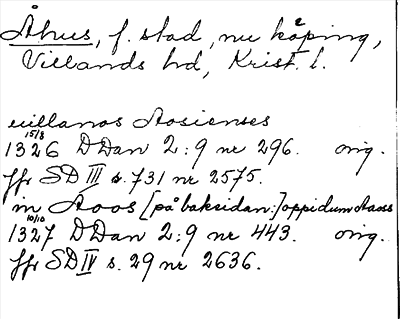 Åhus, f. stad, nu köping,
Villands hd, Krist. l.
uillanos Aosienses
15/8
1326 DDan 2:9 nr 296. orig.
jfr SD III s. 731 nr 2575.
in Aoos [på baksidan:] oppidum Aaoss
10/10
1327 DDan 2:9 nr 443. orig.
jfr SD IV s. 29 nr 2636.